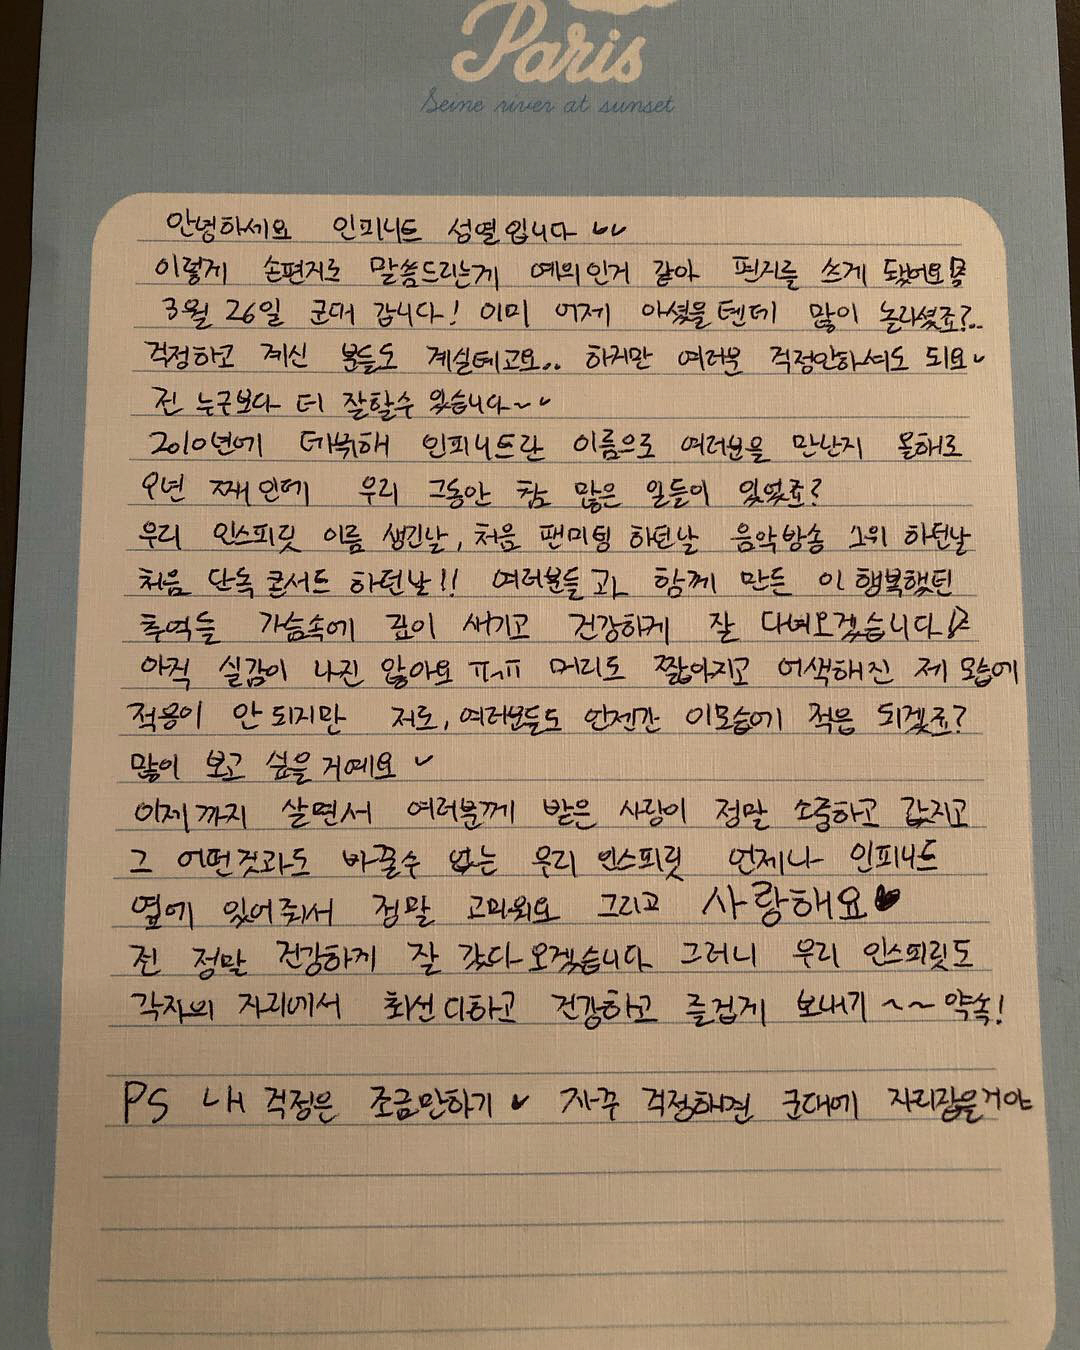 Paris
Seine river at sunset
안녕하세요 인피니트 성열입니다
이렇게 손편지로 말씀드리는게 예의인거 같아 편지를 쓰게 됐어요
3월 26일 군대 갑니다! 이미 어제 아셨을텐데 많이 놀라셨죠?..
걱정하고 계신 분들도 계실테고요.. 하지만 여러분 걱정안하셔도 되요
전 누구보다 더 잘할수 있습니다~
2010년에 데뷔해 인피니트란 이름으로 여러분을 만난지 올해로
9년 째인데 우리 그동안 참 많은 일들이 있었죠?
우리 인스피릿 이름 생긴날, 처음 팬미팅 하던날 음악방송 1위 하던날
처음 단독콘서트 하던날!! 여러분들과 함께 만든 이 행복했던
추억들 가슴속에 깊이 새기고 건강하게 잘 다녀오겠습니다!
아직 실감이 나진 않아요 ㅠ.ㅠ 머리도 짧아지고 어색해진 제 모습에
적응이 안되지만 저도, 여러분들도 언젠간 이모습에 적응 되겠죠?
많이 보고 싶을거예요
이제까지 살면서 여러분께 받은 사랑이 정말 소중하고 값지고
그 어떤것과도 바꿀수 없는 우리 인스피릿 언제나 인피니트
옆에 있어줘서 정말 고마워요 그리고 사랑해요♥
전 정말 건강하게 잘 갔다오겠습니다 그러니 우리 인스피릿도
각자의 자리에서 최선 다하고 건강하고 즐겁게 보내기 ~~ 약속!
PS 내 걱정은 조금만하기 자꾸 걱정하면 군대에 자리잡을거야